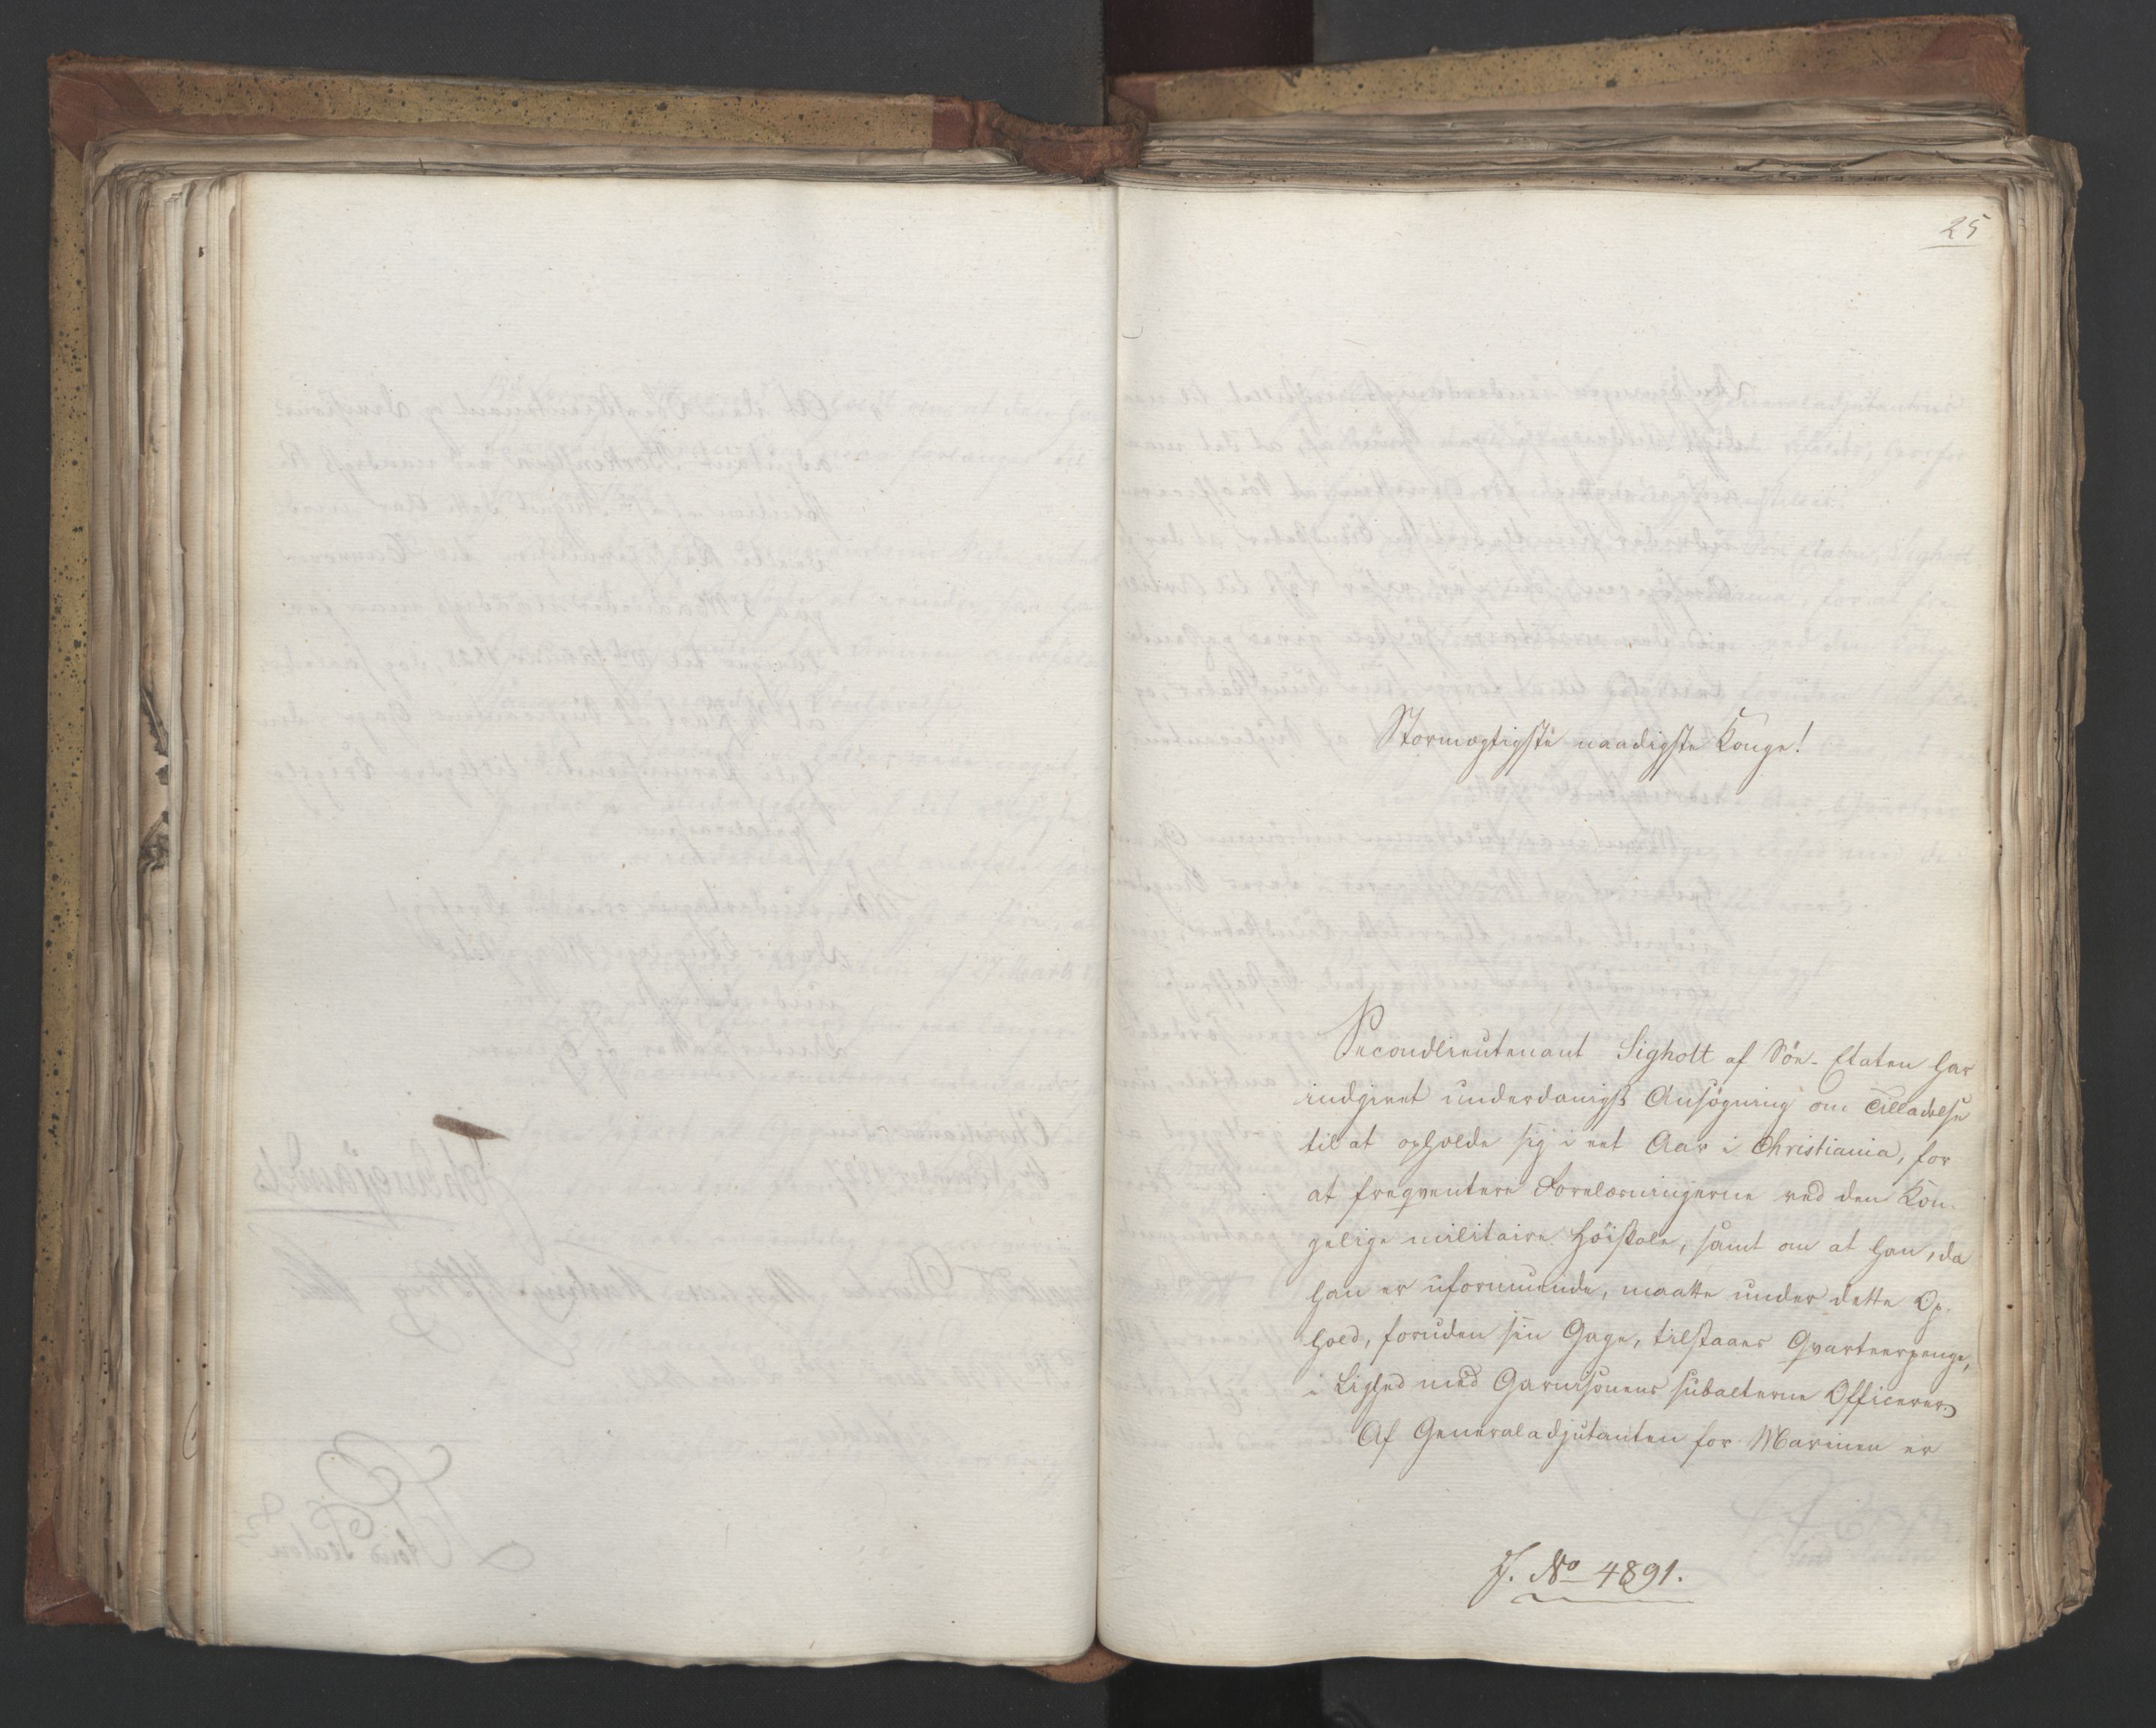 25
Stormægtigste naadigste Konge!
Secondlieutenant Sigholt af Söe-Etaten har
indgivet underdanigst Ansögning om Tilladelse
til at opholde sig i eet Aar i Christiania, for
at freqventere Forelæsningerne ved den Kon-
gelige militaire Höiskole, samt om at han, da
han er uformuende, maatte under dette Op-
hold, foruden sin Gage, tilstaaes Qvarteerpenge,
i Lighed med Garnisonens subalterne Officerer.
Af Generaladjutanten for Marinen er
J. No 4891.